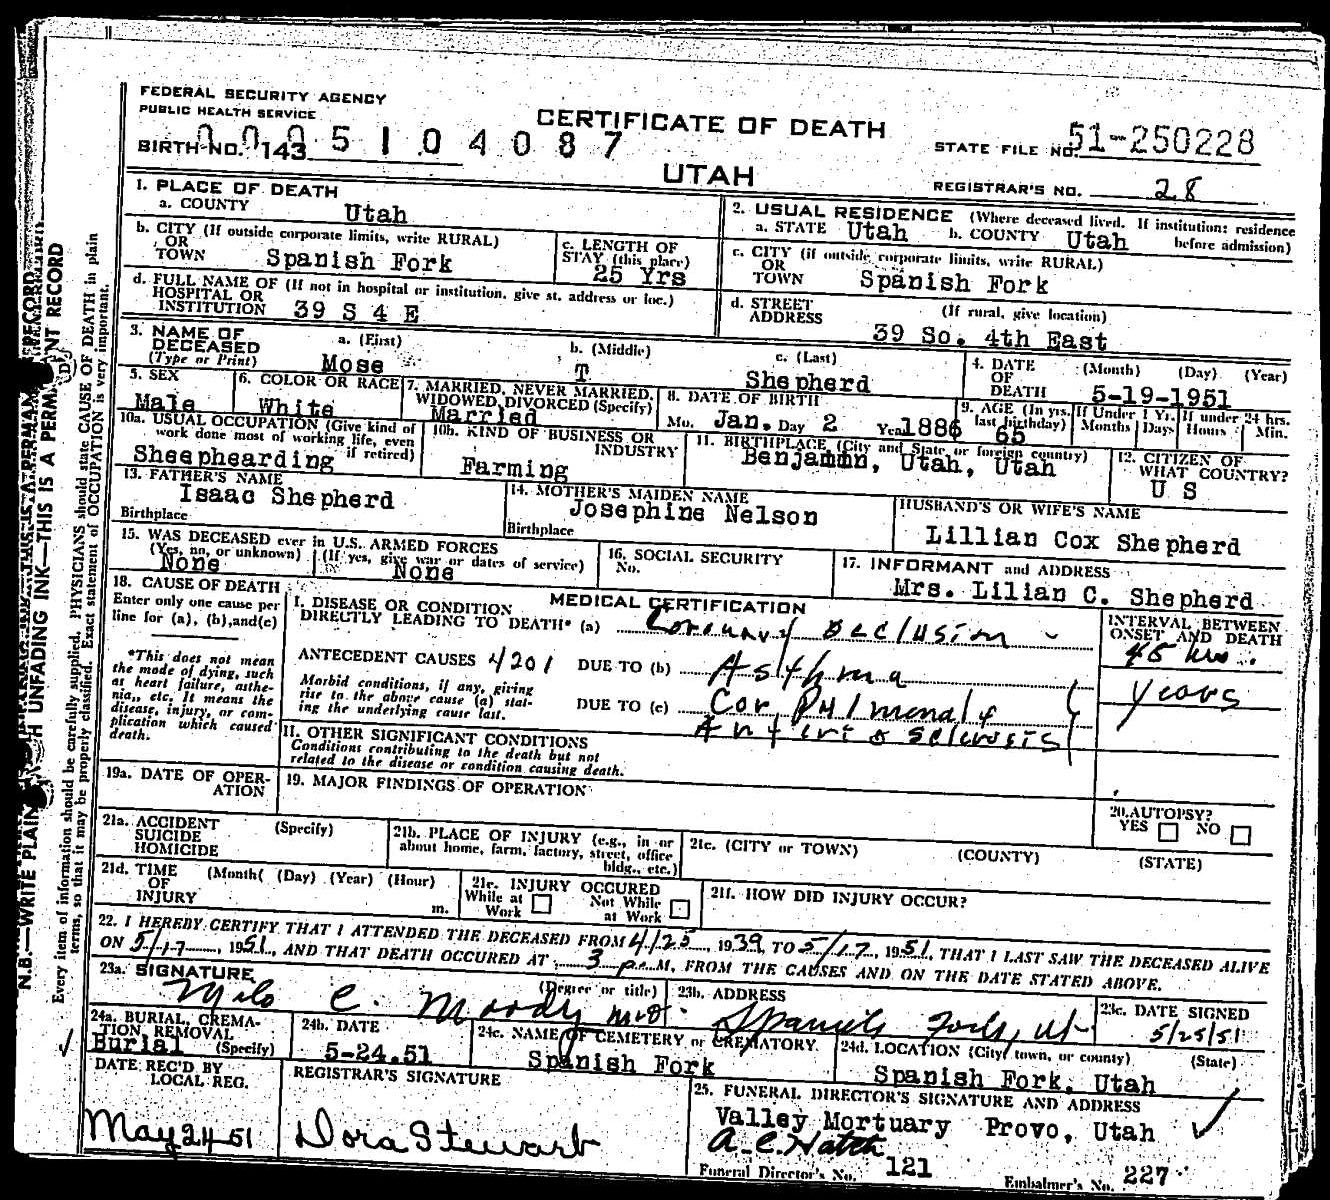 FEDERAL SECURITY AGENCY
PUBLIC HEALTH SERVICE
CERTIFICATE OF DEATH
UTAH
BIRTH NO. 143
0005104087
STATE FILE NO. 51-250228
REGISTRAR'S NO. 28
1. PLACE OF DEATH
a. COUNTY Utah
b. CITY (If outside corporate limits, write RURAL)
OR
TOWN Spanish Fork
c. LENGTH OF
STAY (this place)
25 Yrs
d. FULL NAME OF (If not in hospital or institution, give st. address or loc.)
HOSPITAL OR
INSTITUTION 39 S 4 E
2. USUAL RESIDENCE (Where deceased lived. If institution: residence
before admission)
a. STATE Utah b. COUNTY Utah
c. CITY (if outside corporate limits, write RURAL)
OR
TOWN Spanish Fork
d. STREET (If rural, give location)
ADDRESS 39 So. 4th East
3. NAME OF
DECEASED
(Type or Print)
a. (First) Mose
b. (Middle) T
c. (Last) Shepherd
4. DATE
OF
DEATH
(Month) (Day) (Year)
5-19-1951
5. SEX
Male
6. COLOR OR RACE
White
7. MARRIED, NEVER MARRIED,
WIDOWED, DIVORCED (Specify)
Married
8. DATE OF BIRTH
Mo. Jan. Day 2 Year 1886
9. AGE (In yrs.
last birthday)
65
If Under 1 Yr.
Months Days
If under 24 hrs.
Hours Min.
10a. USUAL OCCUPATION (Give kind of
work done most of working life, even
if retired)
Sheephearding
10b. KIND OF BUSINESS OR
INDUSTRY
Farming
11. BIRTHPLACE (City and State, or foreign country)
Benjamin, Utah, Utah
12. CITIZEN OF
WHAT COUNTRY?
U S
13. FATHER'S NAME
Isaac Shepherd
Birthplace
14. MOTHER'S MAIDEN NAME
Josephine Nelson
Birthplace
HUSBAND'S OR WIFE'S NAME
Lillian Cox Shepherd
15. WAS DECEASED ever in U.S. ARMED FORCES
(Yes, no, or unknown) (If yes, give war or dates of service)
None None
16. SOCIAL SECURITY
No.
17. INFORMANT and ADDRESS
Mrs. Lilian C. Shepherd
18. CAUSE OF DEATH
Enter only one cause per
line for (a), (b), and (c)
*This does not mean
the mode of dying, such
as heart failure, asthe-
nia, etc. It means the
disease, injury, or com-
plication which caused
death.
MEDICAL CERTIFICATION
I. DISEASE OR CONDITION
DIRECTLY LEADING TO DEATH* (a) Coronary Occlusion
ANTECEDENT CAUSES 4201 DUE TO (b) Asthma
Morbid conditions, if any, giving
rise to the above cause (a) stat-
ing the underlying cause last.
DUE TO (c) Cor Pulmonale
Arteriosclerosis
INTERVAL BETWEEN
ONSET AND DEATH
48 hrs.
years
II. OTHER SIGNIFICANT CONDITIONS
Conditions contributing to the death but not
related to the disease or condition causing death.
19a. DATE OF OPER-
ATION
19. MAJOR FINDINGS OF OPERATION
20. AUTOPSY?
YES NO
21a. ACCIDENT (Specify)
SUICIDE
HOMICIDE
21b. PLACE OF INJURY (e.g., in or
about home, farm, factory, street, office
bldg., etc.)
21c. (CITY or TOWN) (COUNTY) (STATE)
21d. TIME (Month( (Day) (Year) (Hour)
OF
INJURY m.
21e. INJURY OCCURED
While at Not While
Work at Work
21f. HOW DID INJURY OCCUR?
22. I HEREBY CERTIFY THAT I ATTENDED THE DECEASED FROM 4/25, 1939, TO 5/17, 1951, THAT I LAST SAW THE DECEASED ALIVE
ON 5/17, 1951, AND THAT DEATH OCCURED AT 3 p.M, FROM THE CAUSES AND ON THE DATE STATED ABOVE.
23a. SIGNATURE (Degree or title)
Milo C. Moody M.D.
23b. ADDRESS
Spanish Fork, Ut
23c. DATE SIGNED
5/25/51
24a. BURIAL, CREMA-
TION, REMOVAL
(Specify)
Burial
24b. DATE
5-24.51
24c. NAME OF CEMETERY or CREMATORY
Spanish Fork
24d. LOCATION (City, town, or county) (State)
Spanish Fork, Utah
DATE REC'D BY
LOCAL REG.
May 24-51
REGISTRAR'S SIGNATURE
Dora Stewart
25. FUNERAL DIRECTOR'S SIGNATURE AND ADDRESS
Valley Mortuary Provo, Utah
A. C. Hatch
Funeral Director's No. 121
Embalmer's No. 227
UNFADING INK—THIS IS A PERMANENT RECORD
N.B.—WRITE PLAIN
Every item of information should be carefully supplied. PHYSICIANS should state CAUSE OF DEATH in plain
terms, so that it may be properly classified. Exact statement of OCCUPATION is very important.